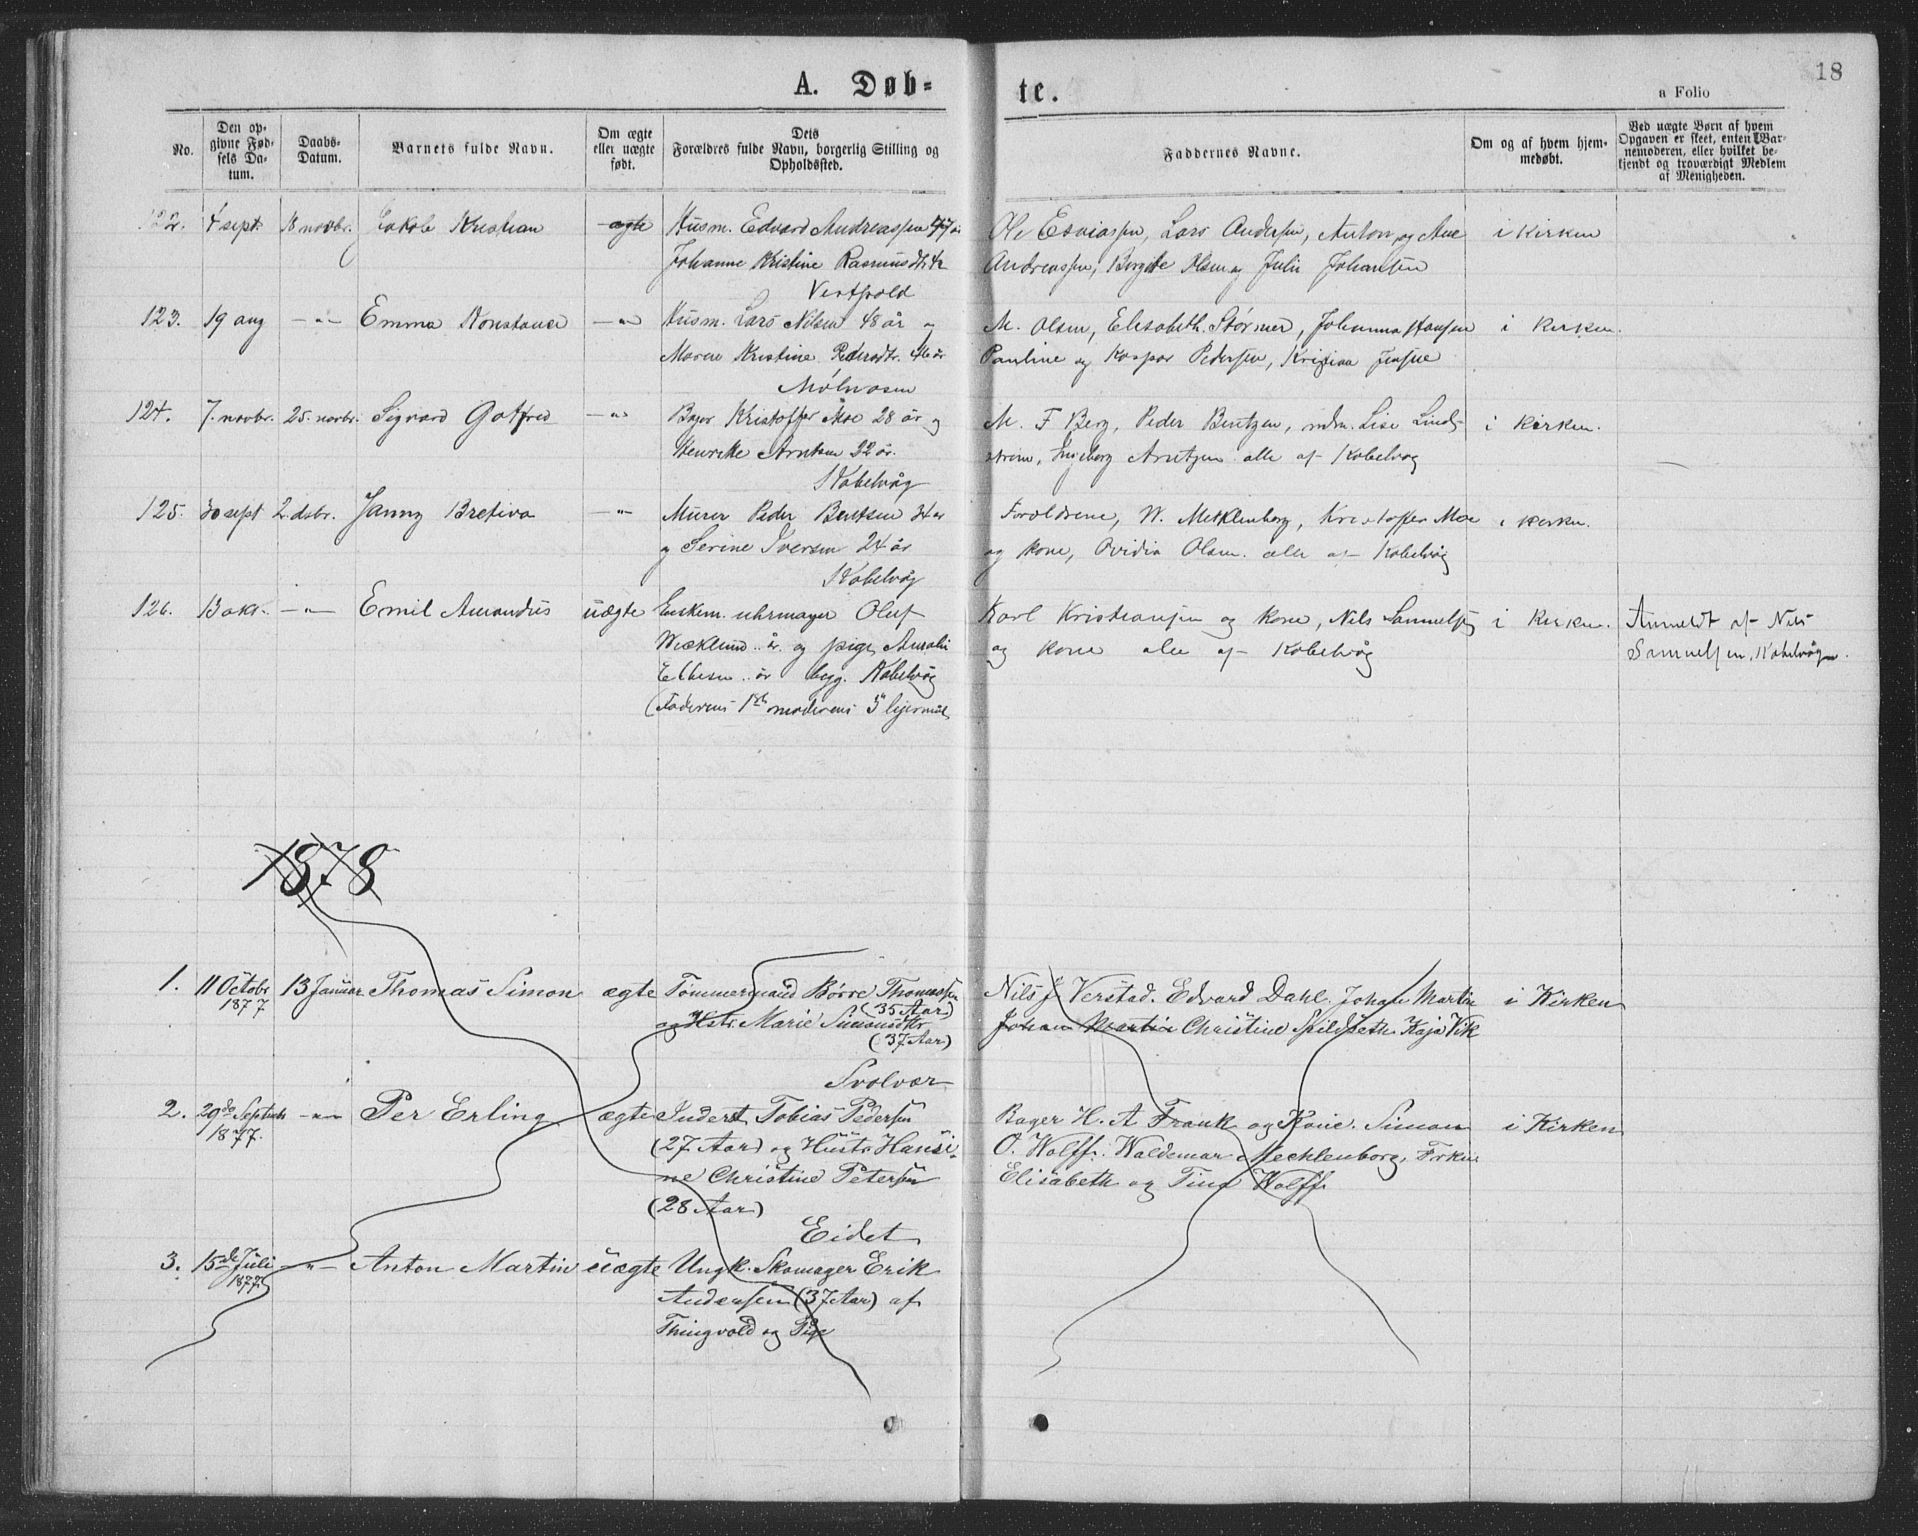 18
A. Døb-
te.
a Folio
No.
Den op-
givne Fød-
sels Da-
tum.
Daabs-
Datum.
Barnets fulde Navn.
Om ægte
eller uægte
født.
Dets
Forældres fulde Navn, borgerlig Stilling og
Opholdssted.
Faddernes Navne.
Om og af hvem hjem-
medøbt.
Ved uægte Børn af hvem
Opgaven er skeet, enten Bar-
nemoderen, eller hvilket be-
kjendt og troværdigt Medlem
af Menigheden.
122. 4 sept. 18 novbr. Jakob Kristian ægte Husm. Edvard Andreassen 47 år
Johanne Kristine Rasmusdtr
Vestpold
Ole Lars Andersen, Anton og Ane i kirken
Andreassen, Bergitte Olsen og Julie Johansen
123. 19 aug -"- Emma Konstance -"- Husm. Lars Nilsen 48 år og
Maren Kristine Pedersdtr. 46 år
Mølnosen
M. Olsen, Elisabeth Størmer, Johanna Hansen i kirken.
Pauline og Kaspar Pedersen, Kristian
124. 7. novbr. 25. novbr. Sigvard Gotfred -"- Bager Kristoffer Moe 28 år og
Henrikke Arntsen 22 år.
Kabelvåg
M. F Berg, Peder Bentzen, mdm. Lise Lind- i kirken.
strøm, Ingeborg Arntzen alle af Kabelvåg
125. 30 sept 2. dsbr. Janny Bretiva -"- Murer Peder Bentsen 34 år
og Serine Iversen 24 år
Kabelvåg
Forældrene, W. Mecklenborg, Kristoffer Moe i kirken.
og kone, Ovidia Olsen. alle af Kabelvåg
126. 13 okt. -"- Emil Amandus uægte Enkem. uhrmager Oluf
Wicklund .. år. og pige Amalie
Ellesen .. år begg. Kabelvåg
(Faderens 1ste moderens 3 lejermål
Karl Kristiansen og kone, Nils Samuelsen i kirken.
og kone alle af Kabelvåg
Anmeldt af Nils
Samuelsen, Kabelvåg.
1878
1. 11 Octobr 13 Januar Thomas Simon ægte Tømmermand Børre Thomassen
1877
(35 Aar)
og Hstr. Marie Simonsdtr
(37 Aar)
Svolvær
Nils J Verstad. Edvard Dahl. Johan Martin i Kirken
Johan Martin Christine Spildseth Kaja Vik
2. 29de Septbr -"- Per Erling ægte Inderst Tobias Pedersen
1877.
(27 Aar) og Hustr Hansi-
ne Christine Petersen
(28 Aar)
Eidet
Bager H. A Frank og Kone. Simon i Kirken
O. Wolff. Waldemar Mecklenborg, Frkn
Elisabeth og Tina Wolff
3. 15de Juli -"- Anton Martin uægte Ungk. Skomager Erik
1877
Andersen (37 Aar) af
Thingvold og Pige